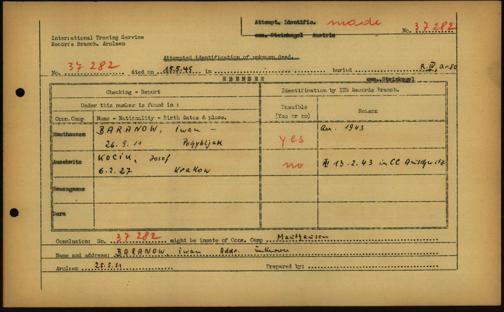 Attempt. Identific. made
com. Steinkogel Austria No. 37 282
International Tracing Service
Records Branch, Arolsen
Attempted identification of unknown dead.
No. 37 282 died on 18.5.45 in buried
EBENSEE com. Steinkogl
Checking - Report Identification by ITS Records Branch.
Under this number is found in: Possible (Yes or no) Reason
Conc.Camp Name - Nationality - Birth dates & place.
Mauthausen BARANOW, Iwan - yes 1943
26.5.11
Auschwitz KOCIU, Josef no 13.2.43 in CC Auschwitz
6.2.27 Krakow
Dora
Conclusion: No. 37 282 might be inmate of Conc. Camp Mauthausen
Name and address: BARANOW, Iwan Addr. unknown
Arolsen 25.5.51 Prepared by: